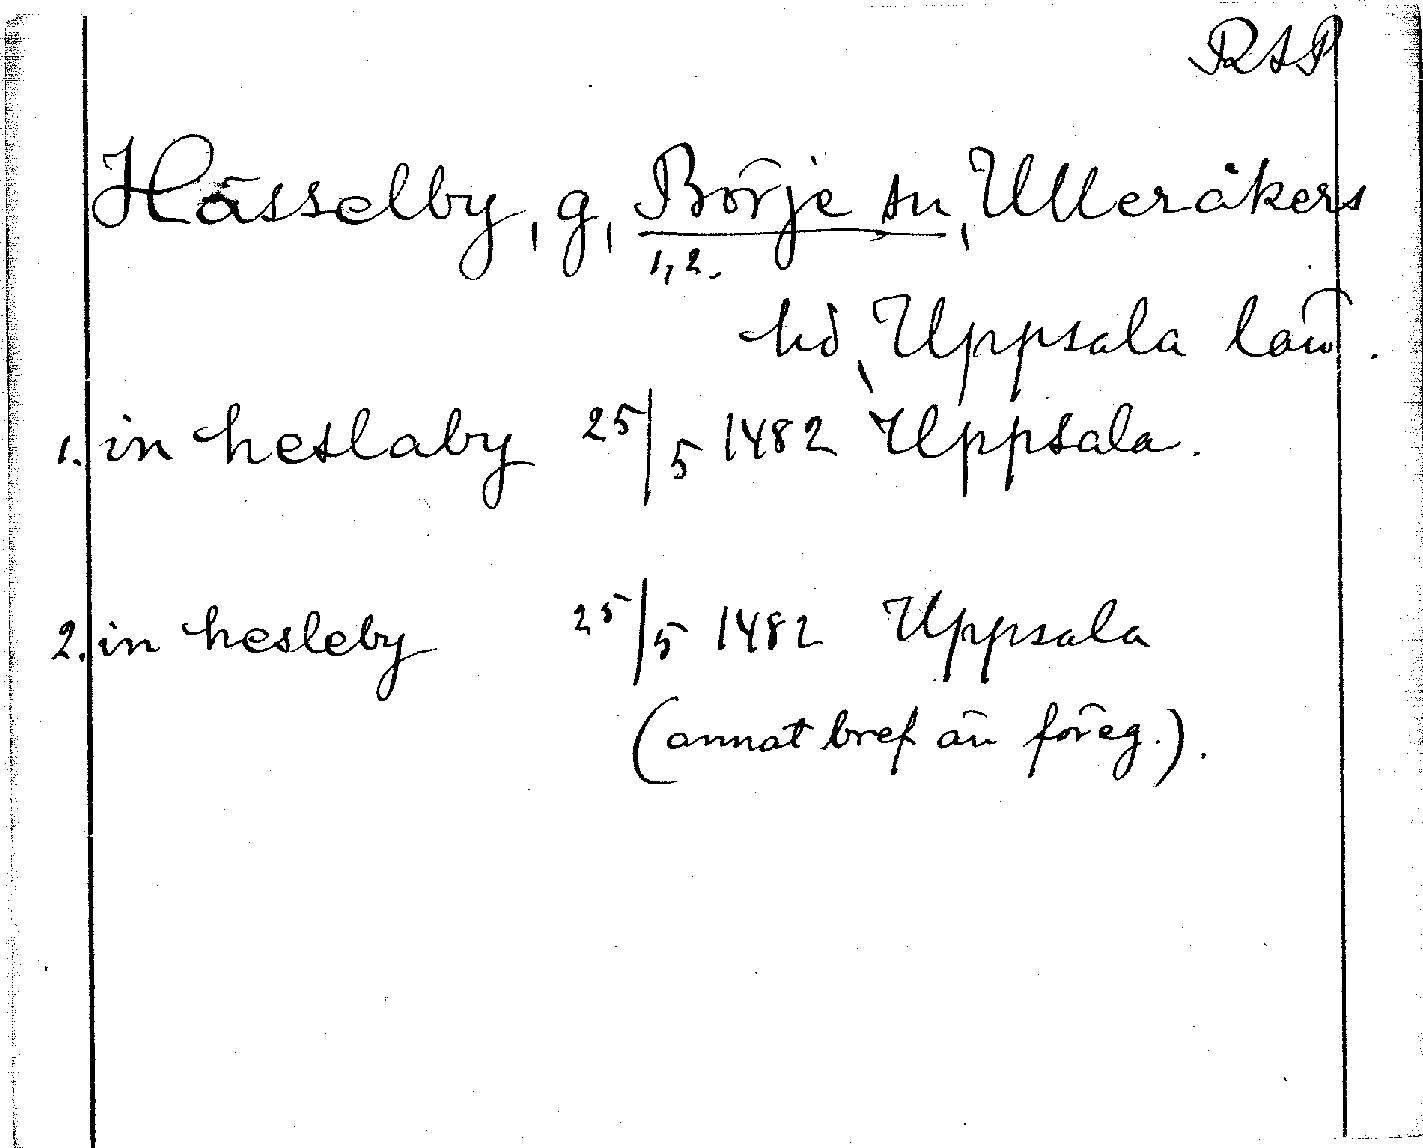 RAP
Hässelby, g, Börje sn, Ulleråkers
1, 2.
hd, Uppsala län.
1. in heslaby 25/5 1482 Uppsala.
2. in hesleby 25/5 1482 Uppsala
(annat bref än föreg.).